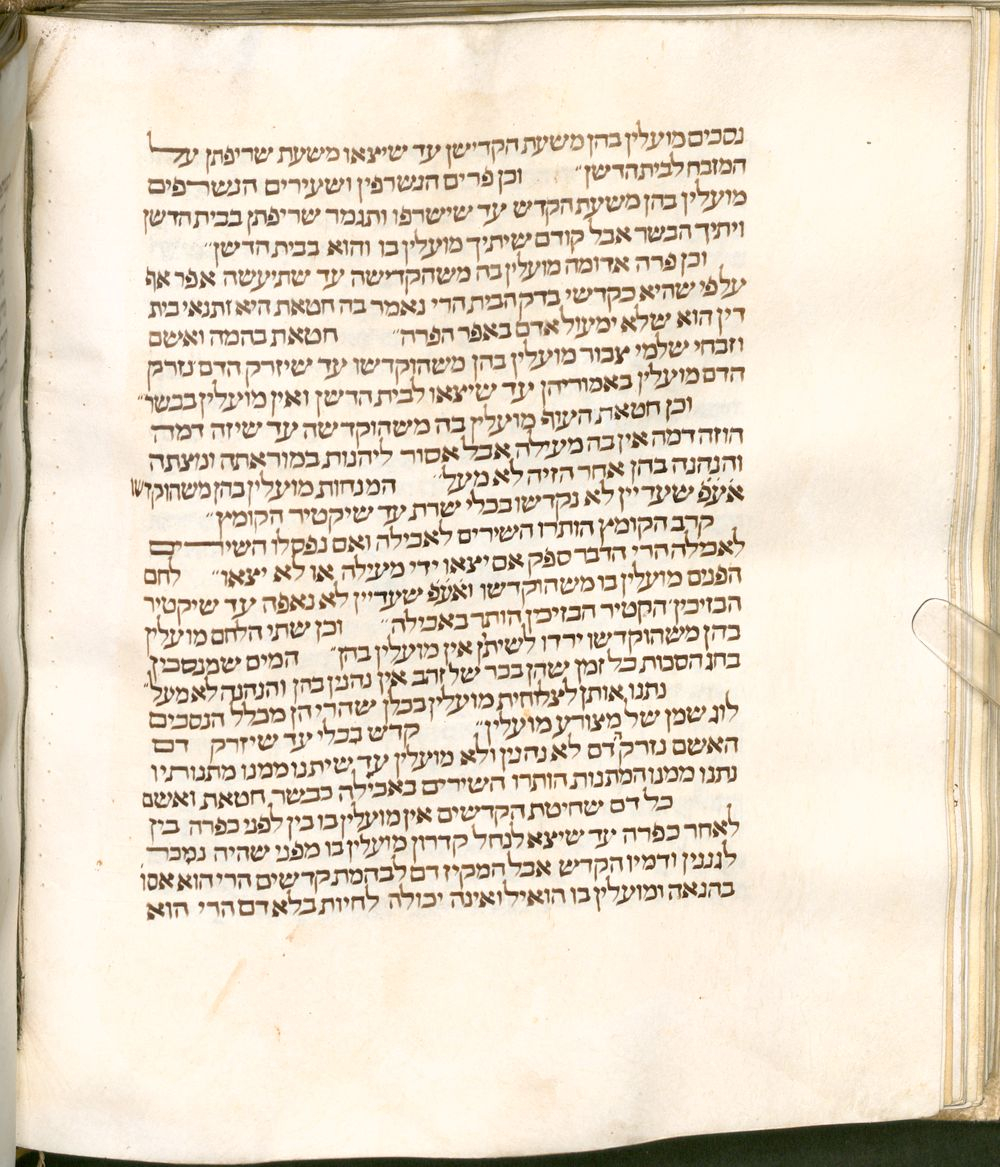 נסכים מועלין בהן משעת הקדישן עד שיצאו משעת שריפתן על
המזבח לבית הדשן״ וכן פרים הנשרפין ושעירים הנשרפים
מועלין בהן משעת הקדש עד שישרפו ותגמר שריפתן בבית הדשן
ויתיך הבשר אבל קודם שיתיך מועלין בו והוא בבית הדשן״
וכן פרה אדומה מועלין בה משהקדישה עד שתיעשה אפר אף
על פי שהיא כקדשי בדק הבית הרי נאמר בה חטאת היא ותנאי בית
דין הוא שלא ימעול אדם באפר הפרה״ חטאת בהמה ואשם
וזבחי שלמי צבור מועלין בהן משהוקדשו עד שיזרק הדם נזרק
הדם מועלין באמוריהן עד שיצאו לבית הדשן ואין מועלין בבשר״
וכן חטאת העוף מועלין בה משהוקדשה עד שיזה דמה
הוזה דמה אין בה מעילה אבל אסור ליהנות במוראתה ונוצתה
והנהנה בהן אחר הזיה לא מעל״ המנחות מועלין בהן משהוקדשו
אעפ שעדיין לא נקדשו בכלי שרת עד שיקטיר הקומץ״
קרב הקומץ הותרו השירים לאכילה ואם נפסלו השירים
לאכילה הרי הדבר ספק אם יצאו ידי מעילה או לא יצאו״ לחם
הפנים מועלין בו משהוקדשו ואעפ שעדיין לא נאפה עד שיקטיר
הבזיכין הקטיר הבזיכין הותר באכילה״ וכן שתי הלחם מועלין
בהן משהוקדשו ירדו לשיתן אין מועלין בהן״ המים שמנסכין
בחג הסכות כל זמן שהן בכד של זהב אין נהנין בהן והנהנה לא מעל״
נתנו אותן לצלוחית מועלין בכלן שהרי הן מכלל הנסכים
לוג שמן של מצורע מועלין״ קדש בכלי עד שיזרק דם
האשם נזרק הדם לא נהנין ולא מועלין עד שיתנו ממנו מתנותיו
נתנו ממנו המתנות הותרו השירים באכילה כבשר חטאת ואשם
כל דם שחיטת הקדשים אין מועלין בו בין לפני כפרה בין
לאחר כפרה עד שיצא לנחל קדרון מועלין בו מפני שהיה נמכר
לגננין ודמיו הקדש אבל המקיז דם לבהמת קדשים הרי הוא אסו
בהנאה ומועלין בו הואיל ואינה יכולה לחיות בלא דם הרי הוא